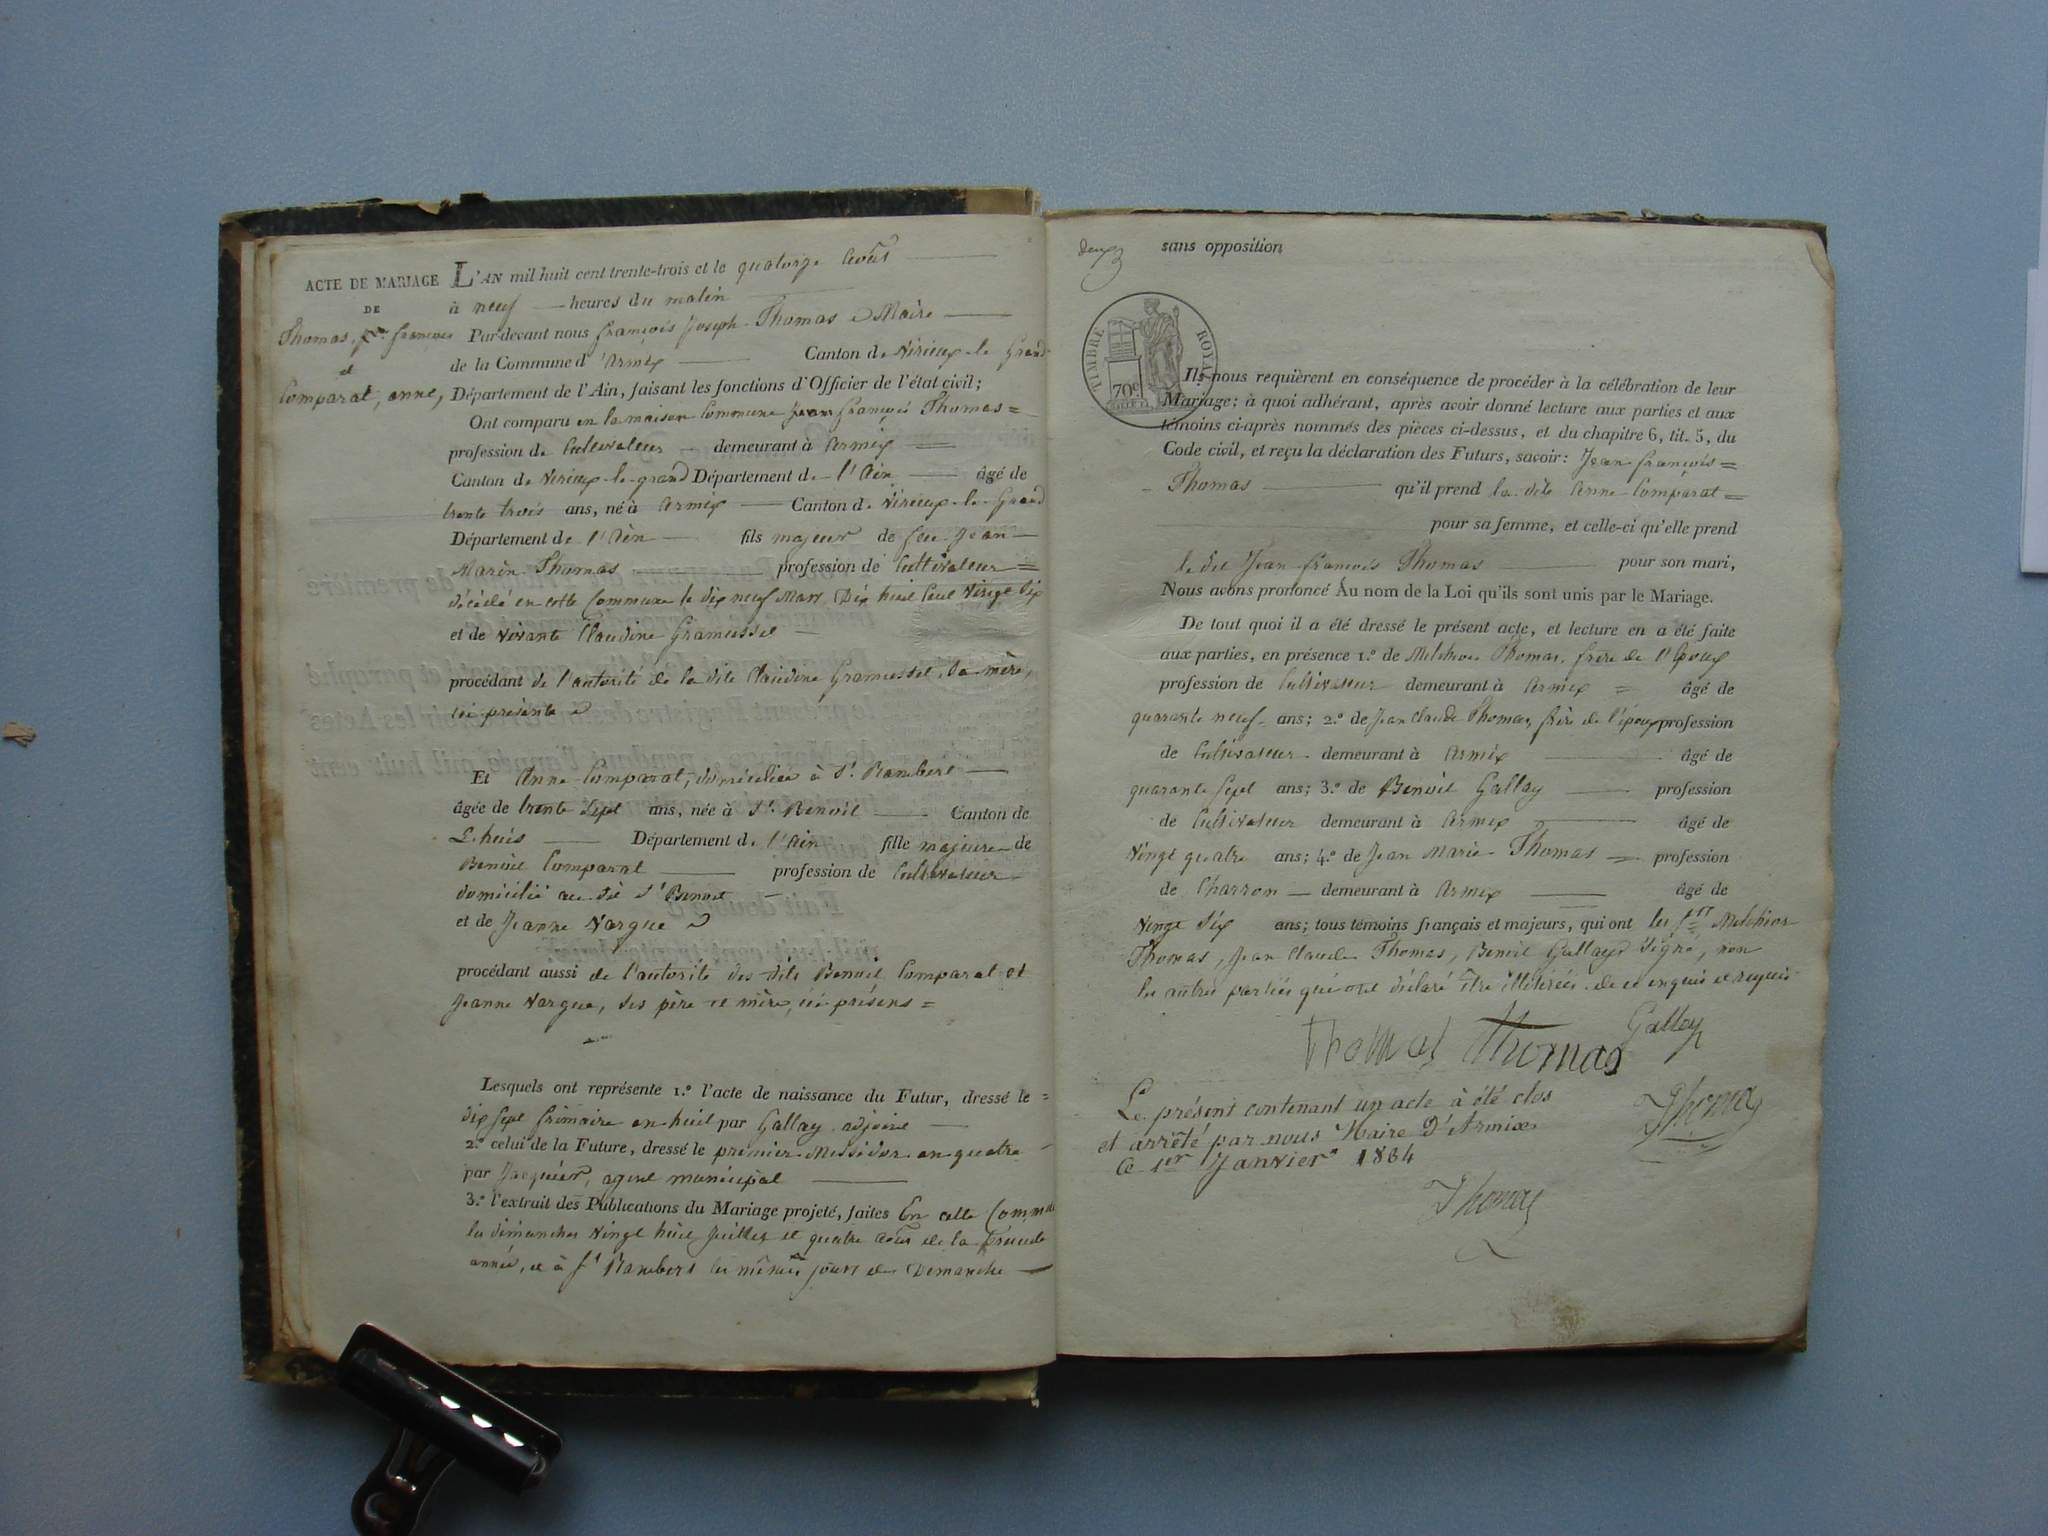 ACTE DE MARIAGE
DE
Thomas, Jn. françois
et
Comparat, anne,
L'AN mil huit cent trente-trois et le quatorze Août
à neuf heures du matin
Par-devant nous françois Joseph Thomas Maire
de la Commune d'Armix Canton de Virieux-le-Grand
Département de l'Ain, faisant les fonctions d'Officier de l'état civil;
Ont comparu en la maison Commune Jean françois Thomas =
profession de Cultivateur demeurant à Armix =
Canton de Virieux-le-grand Département de l'Ain âgé de
trente trois ans, né à Armix Canton de Virieux-le-Grand
Département de l'Ain fils majeur de feu Jean
Marin Thomas profession de Cultivateur =
décédé en cette Commune le dix neuf Mars Dix huit Cent Vingt Six
et de vivante Claudine Gramusset
procédant de l'autorité de la dite Claudine Gramusset, sa mère,
ici présente
Et Anne Comparat, domiciliée à St. Rambert
âgée de trente Sept ans, née à St. Benoit Canton de
L'huis Département de l'Ain fille majeure de
Benoit Comparat profession de Cultivateur
domicilié au dit St Benoit
et de Jeanne Vargue
procédant aussi de l'autorité des dits Benoit Comparat et
Jeanne Vargue, ses père et mère, ici présens =
Lesquels ont représente 1.º l'acte de naissance du Futur, dressé le =
dix sept frimaire an huit par Gallay adjoint
2.º celui de la Future, dressé le premier Messidor an quatre
par Jacquier, agent municipal
3.º l'extrait des Publications du Mariage projeté, faites En cette Commune
les dimanches Vingt huit Juillet et quatre Août de la présente
année, et à St Rambert les mêmes jours de Dimanche
deux
sans opposition
TIMBRE ROYAL
70c
Ils nous requièrent en conséquence de procéder à la célébration de leur
Mariage; à quoi adhérant, après avoir donné lecture aux parties et aux
témoins ci-après nommés des pièces ci-dessus, et du chapitre 6, tit. 5, du
Code civil, et reçu la déclaration des Futurs, savoir: Jean françois =
Thomas qu'il prend la dite Anne Comparat =
pour sa femme, et celle-ci qu'elle prend
le dit Jean françois Thomas pour son mari,
Nous avons prononcé Au nom de la Loi qu'ils sont unis par le Mariage.
De tout quoi il a été dressé le présent acte, et lecture en a été faite
aux parties, en présence 1.º de Melchior Thomas, frère de l'Epoux
profession de Cultivateur demeurant à Armix = âgé de
quarante neuf ans; 2.º de Jean Claude Thomas, frère de l'époux profession
de Cultivateur demeurant à Armix âgé de
quarante Sept ans; 3.º de Benoit Gallay profession
de Cultivateur demeurant à Armix âgé de
Vingt quatre ans; 4.º de Jean Marie Thomas = profession
de Charron demeurant à Armix âgé de
Vingt Six ans; tous témoins français et majeurs, qui ont les Melchior
Thomas, Jean Claude Thomas, Benoit Gallay Signé, non
les autres parties qui ont déclaré être illitérées de ce enquis et requis
Thomas Thomas Gallay
Thomas
Le présent contenant un acte à été clos
et arrêté par nous Maire D'Armix
Ce 1er Janvier 1834
Thomas